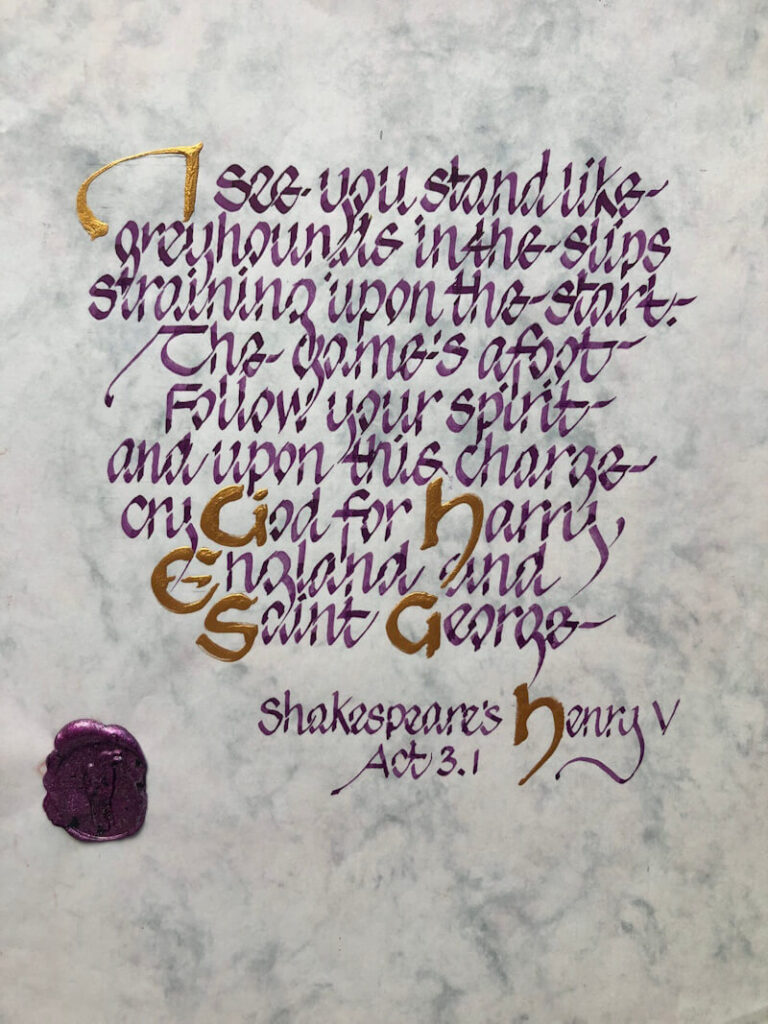 I see you stand like
greyhounds in the slips
straining upon the start.
The game's afoot
Follow your spirit
and upon this charge
cry God for Harry,
England and
Saint George
Shakespeare's Henry V
Act 3.1